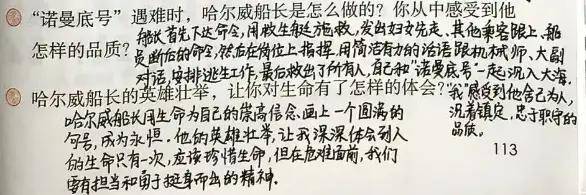 “诺曼底号”遇难时，哈尔威船长是怎么做的？你从中感受到他
船长首先下达命令，用救生艇施救，发出妇女先走、其他乘客跟上、船
怎样的品质？员断后的命令，然后在岗位上指挥，用简洁有力的话语跟机械师、大副
对话，安排逃生工作，最后救出了所有人，自己和“诺曼底号”一起沉入大海。
哈尔威船长的英雄壮举，让你对生命有了怎样的体会？我感受到他舍己为人，
哈尔威船长用生命为自己的崇高信念画上一个圆满的
沉着镇定，忠于职守的
句号，成为永恒。他的英雄壮举，让我深深体会到人
品质。
的生命只有一次，应该珍惜生命，但在危难面前，我们
113
要有担当和勇于挺身而出的精神。